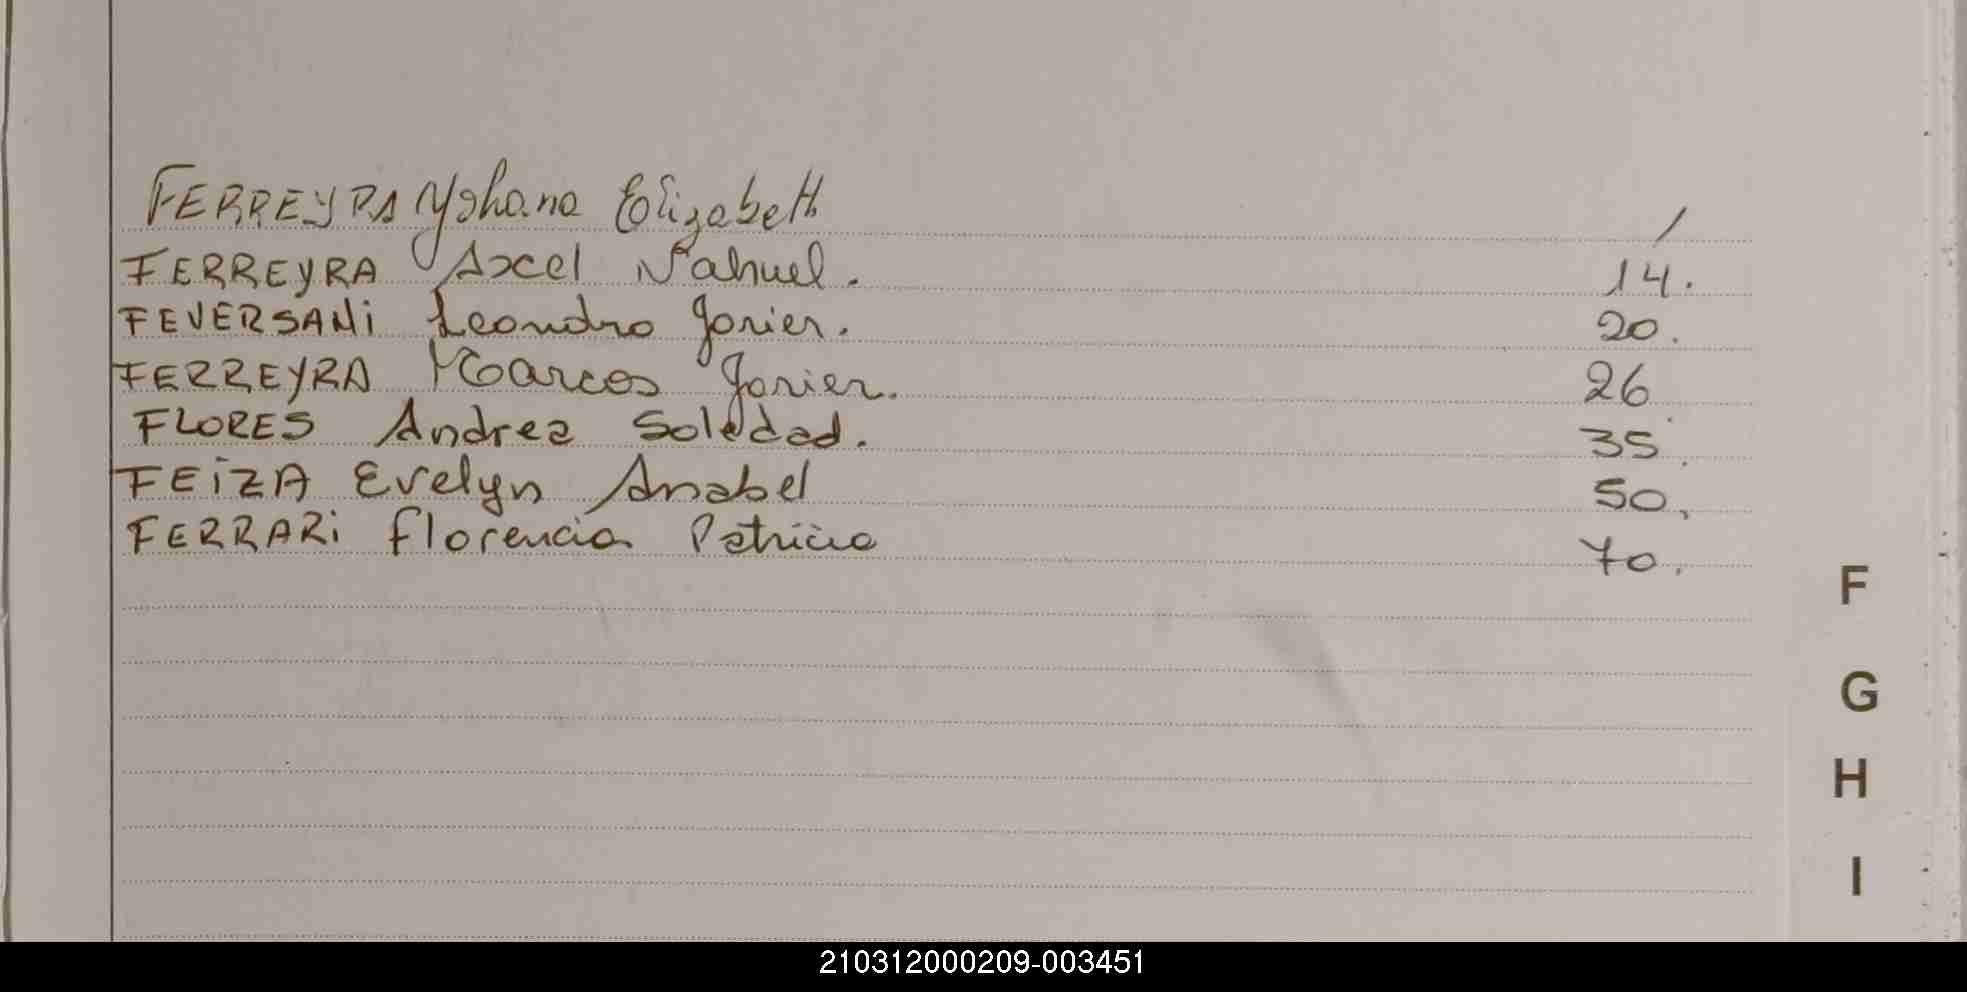 FERREYRA Yohana Elizabeth /
FERREYRA Axcel Nahuel. 14.
FEVERSANi Leandro Javier. 20.
FERREYRA Marcos Javier. 26
FLORES Andrea Soledad. 35.
FEiZA Evelyn Anabel 50.
FERRARi florencia Patricia 70.
F
G
H
I
210312000209-003451